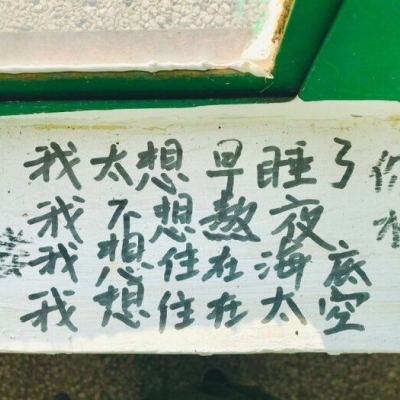 我太想早睡了
我不想熬夜
我想住在海底
我想住在太空